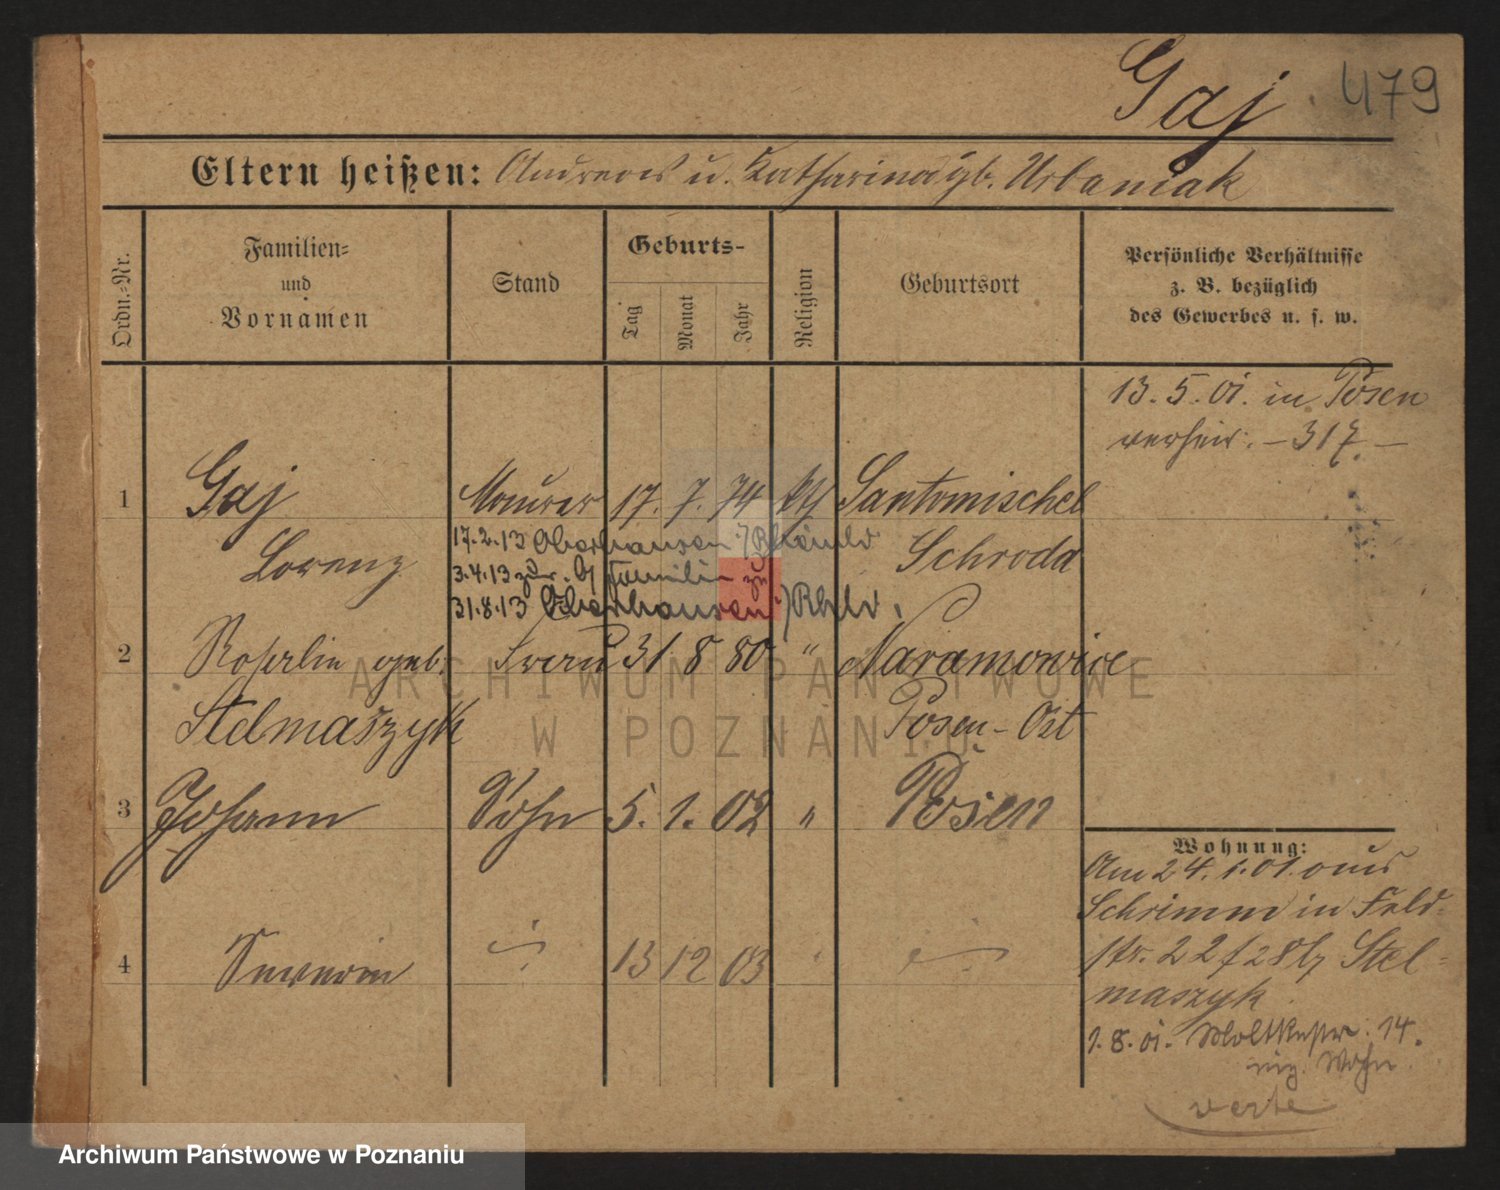 Gaj 479
Eltern heißen: Andreas u. Katharina gb. Urbaniak
Ordn.-Nr.
Familien-
und
Vornamen
Stand
Geburts-
Tag
Monat
Jahr
Religion
Geburtsort
Persönliche Verhältnisse
z. B. bezüglich
des Gewerbes u. s. w.
13. 5. 01. in Posen
verheir. - 317. -
1 Gaj Maurer 17. 7. 74 Santomischel
17.2.13 Oberhausen /Rheinld
Lorenz Schroda
3.4.13 Familie
31.8.13 Oberhausen /Rhld.
2 geb. Frau 31 8 80 " Naramowice
Stelmaszyk Posen-Ost
3 Johann Sohn 5. 1. 02 " Posen
4 Severin 13 12 03
Wohnung:
Am 24. 1. 01. aus
Schrimm in Feld-
str. 22 Stel-
maszyk.
1. 8. 01. Moltkestr. 14.
Wohn.
verte
ARCHIWUM PAŃSTWOWE
W POZNANIU
Archiwum Państwowe w Poznaniu